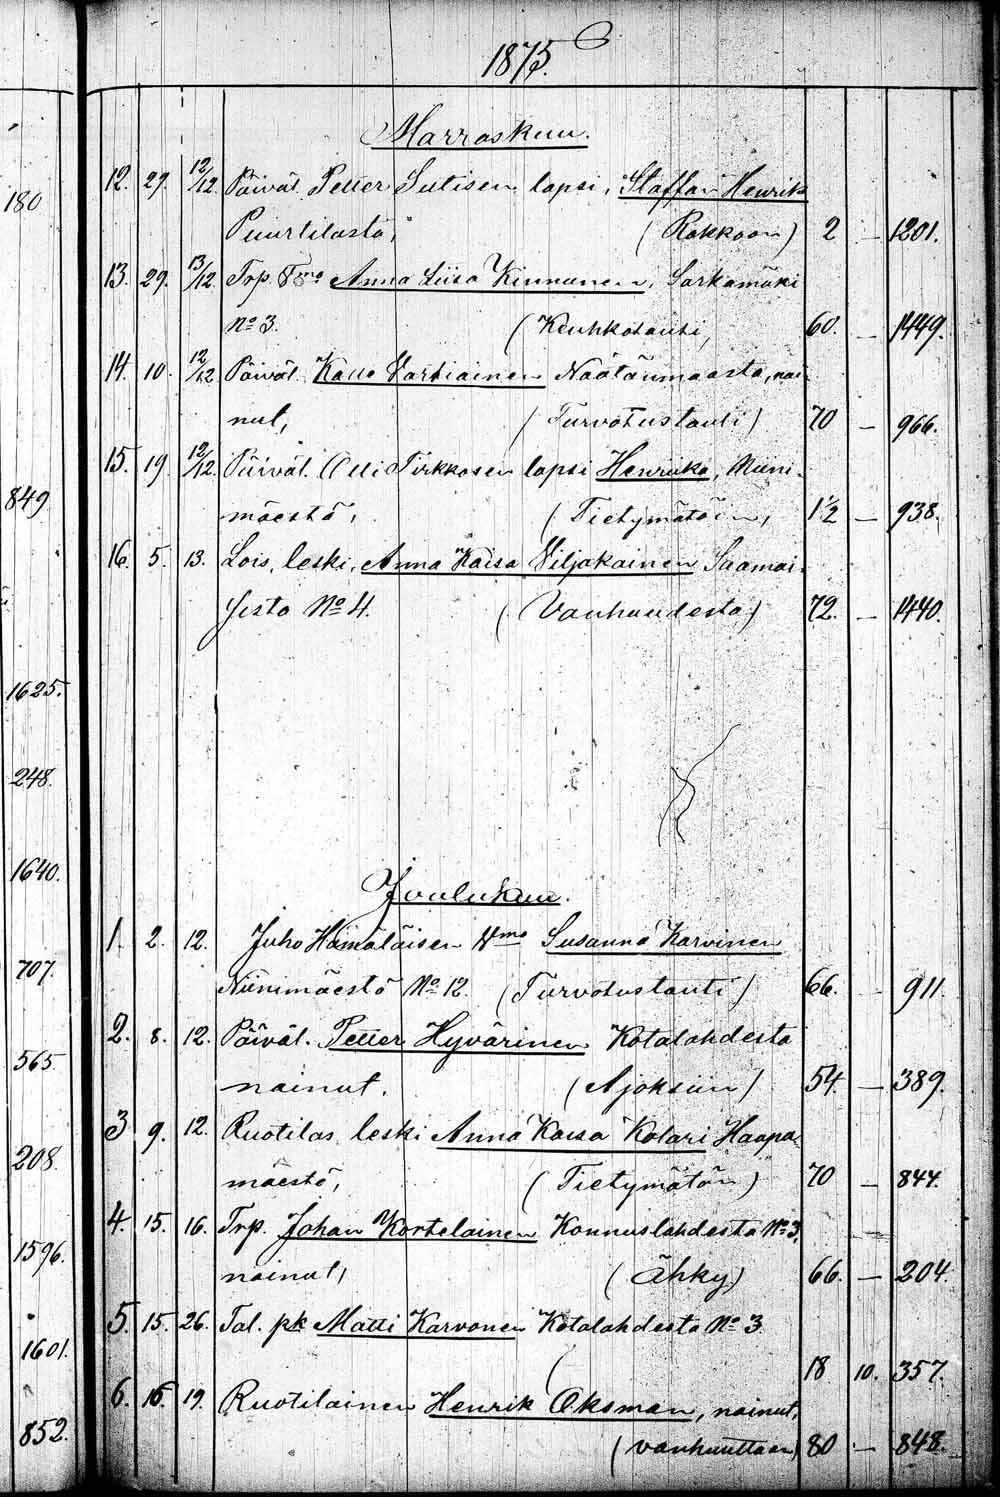 1875.
Marraskuu.
12. 29. 12/12. Päiväl. Petter Sutisen lapsi, Staffan Henrik
Puurtilasta, (Rokkoon) 2 — 1201.
13. 29. 13/12. Trp. Anna Liisa Kinnunen, Sarkamäki
No 3. (Keuhkotauti, 60. — 1449.
14. 10. 12/12. Päiväl. Kalle Vartiainen Näätänmaasta, nai-
nut, (Turvotustauti) 70 — 966.
15. 19. 12/12. Päiväl. Olli Tirkkosen lapsi Henriika, Niini-
mäestä, (Tietymätöin, 1 1/2 — 938.
16. 5. 13. Lois. leski, Anna Kaisa Viljakainen Saamai-
sesta No 4. (Vanhuudesta) 72. — 1440.
Joulukuu.
1. 2. 12. Juho Hämäläisen Vmo Susanna Karvinen
Niinimäestä No 12. (Turvotustauti) 66. — 911.
2. 8. 12. Päiväl. Petter Hyvärinen Kotalahdesta
nainut. (Ajoksiin) 54. — 389.
3 9. 12. Ruotilas leski Anna Kaisa Kolari Haapa-
mäestä, (Tietymätön) 70 — 844.
4. 15. 16. Trp. Johan Kortelainen Konnuslahdesta No 3,
nainut, (Ähky) 66. — 204.
5. 15. 26. Tal. pk Matti Karvonen Kotalahdesta No 3
( 18 10. 357.
6. 16. 19. Ruotilainen Henrik Oksman, nainut,
(vanhuuttaan) 80 — 848.
180
849
1625.
248.
1640.
707.
565.
208.
1596.
1601.
852.